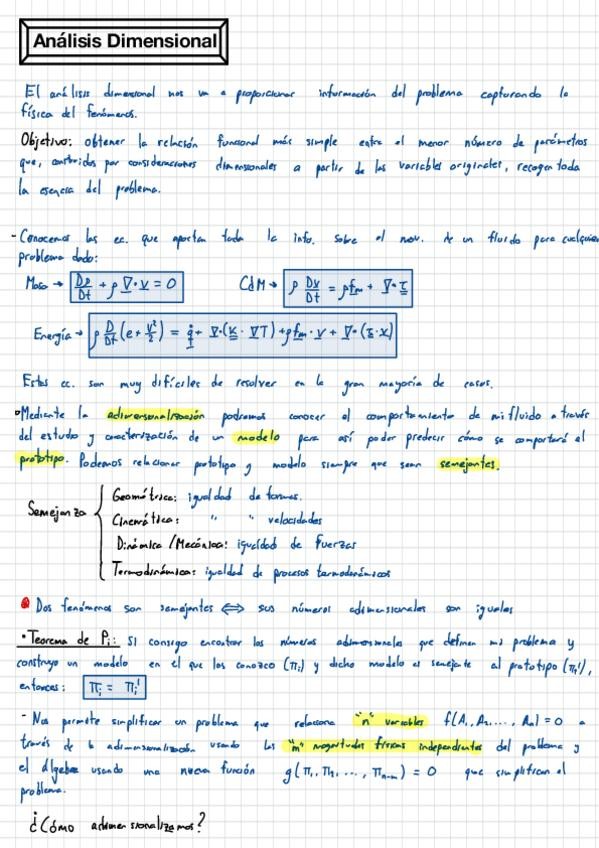 Análisis Dimensional
El análisis dimensional nos va a proporcionar información del problema capturando la
física del fenómenos.
Objetivo: obtener la relación funcional más simple entre el menor número de parámetros
que, contruidos por consideraciones dimensionales a partir de las variables originales, recogen toda
la esencia del problema.
- Conocemos las ec. que aportan toda la info. sobre el mov. de un fluido para cualquier
problema dado:
Masa → Dρ/Dt + ρ ∇·v = 0 CdM → ρ Dv/Dt = ρfm + ∇·τ
Energía → ρ D/Dt (e + v²/2) = q̇ + ∇·(k · ∇T) + ρfm · v + ∇·(τ·v)
Estas ec. son muy difíciles de resolver en la gran mayoría de casos.
• Mediante la adimensionalización podremos conocer el comportamiento de mi fluido a través
del estudio y caracterización de un modelo para así poder predecir cómo se comportará el
prototipo. Podemos relacionar prototipo y modelo siempre que sean semejantes.
Semejanza
Geométrica: igualdad de formas.
Cinemática: " " velocidades
Dinámica/Mecánica: igualdad de fuerzas
Termodinámica: igualdad de procesos termodinámicos
Dos fenómenos son semejantes ⟺ sus números adimensionales son iguales
• Teorema de Pi: Si consigo encontrar los números adimensionales que definen mi problema y
construyo un modelo en el que los conozco (πi) y dicho modelo es semejante al prototipo (πi'),
entonces: πi = πi'
- Nos permite simplificar un problema que relaciona "n" variables f(A₁, A₂, ..., An) = 0 a
través de la adimensionalización usando las "m" magnitudes físicas independientes del problema y
el álgebra usando una nueva función g(π₁, π₂, ..., πn-m) = 0 que simplifican el
problema.
¿Cómo adimensionalizamos?